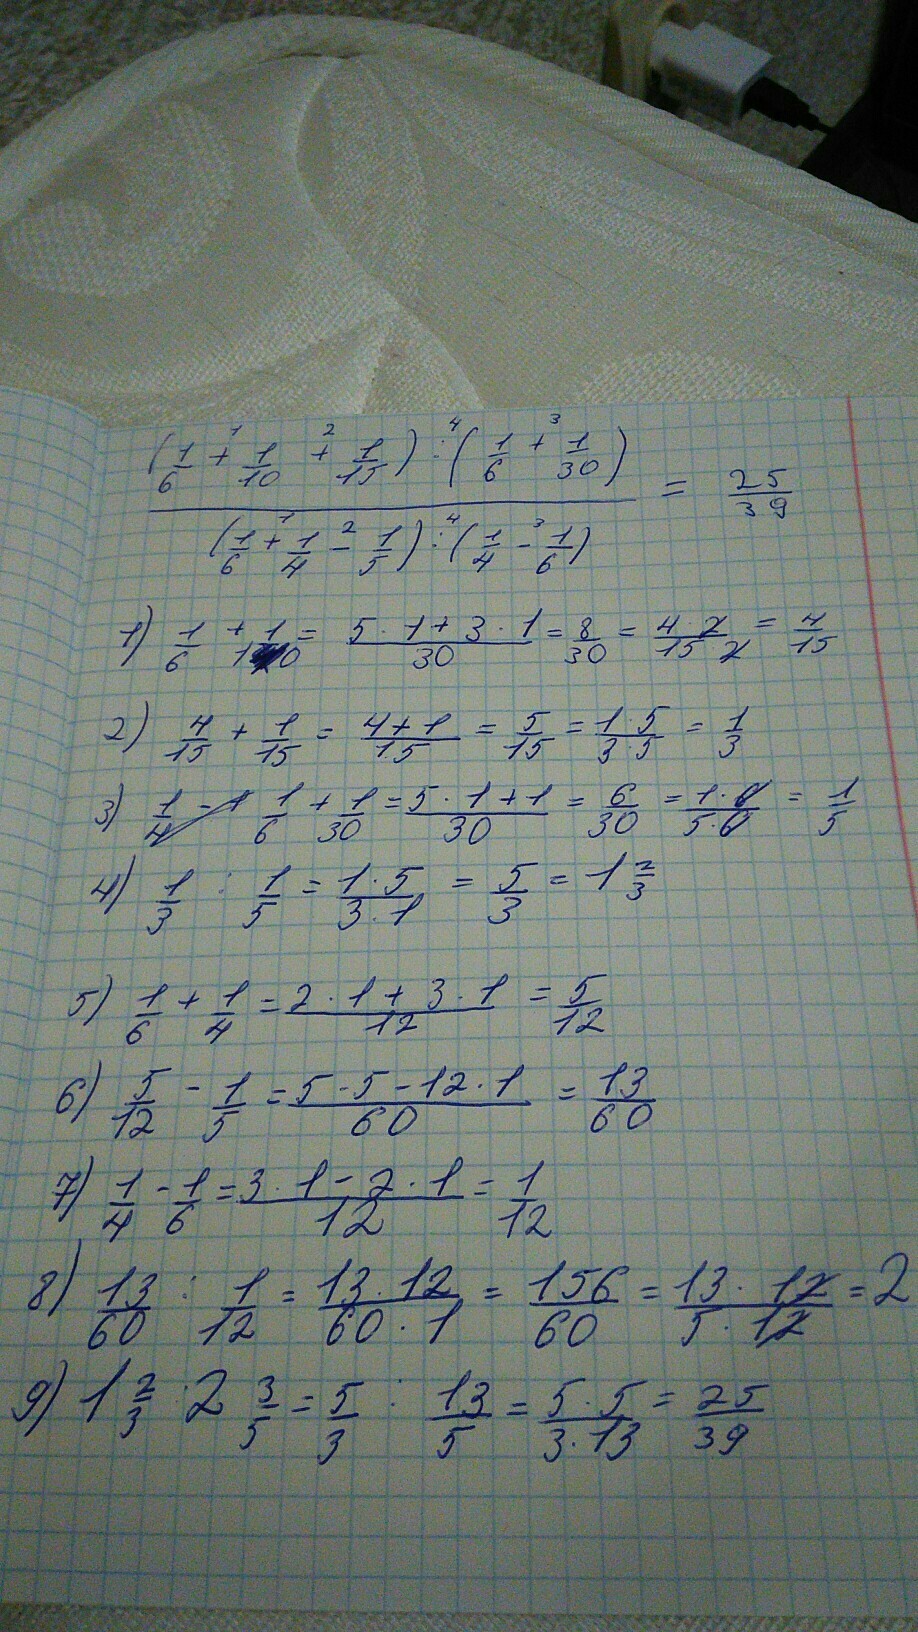 (1/6 + 1/10 + 1/15) : (1/6 + 1/30)
1 2 4 3
= 25/39
(1/6 + 1/4 - 1/5) : (1/4 - 1/6)
1 2 4 3
1) 1/6 + 1/10 = (5 · 1 + 3 · 1)/30 = 8/30 = (4 · 2)/(15 · 2) = 4/15
2) 4/15 + 1/15 = (4 + 1)/15 = 5/15 = (1 · 5)/(3 · 5) = 1/3
3) 1/6 + 1/30 = (5 · 1 + 1)/30 = 6/30 = (1 · 6)/(5 · 6) = 1/5
4) 1/3 : 1/5 = (1 · 5)/(3 · 1) = 5/3 = 1 2/3
5) 1/6 + 1/4 = (2 · 1 + 3 · 1)/12 = 5/12
6) 5/12 - 1/5 = (5 · 5 - 12 · 1)/60 = 13/60
7) 1/4 - 1/6 = (3 · 1 - 2 · 1)/12 = 1/12
8) 13/60 : 1/12 = (13 · 12)/(60 · 1) = 156/60 = (13 · 12)/(5 · 12) = 2
9) 1 2/3 : 2 3/5 = 5/3 : 13/5 = (5 · 5)/(3 · 13) = 25/39